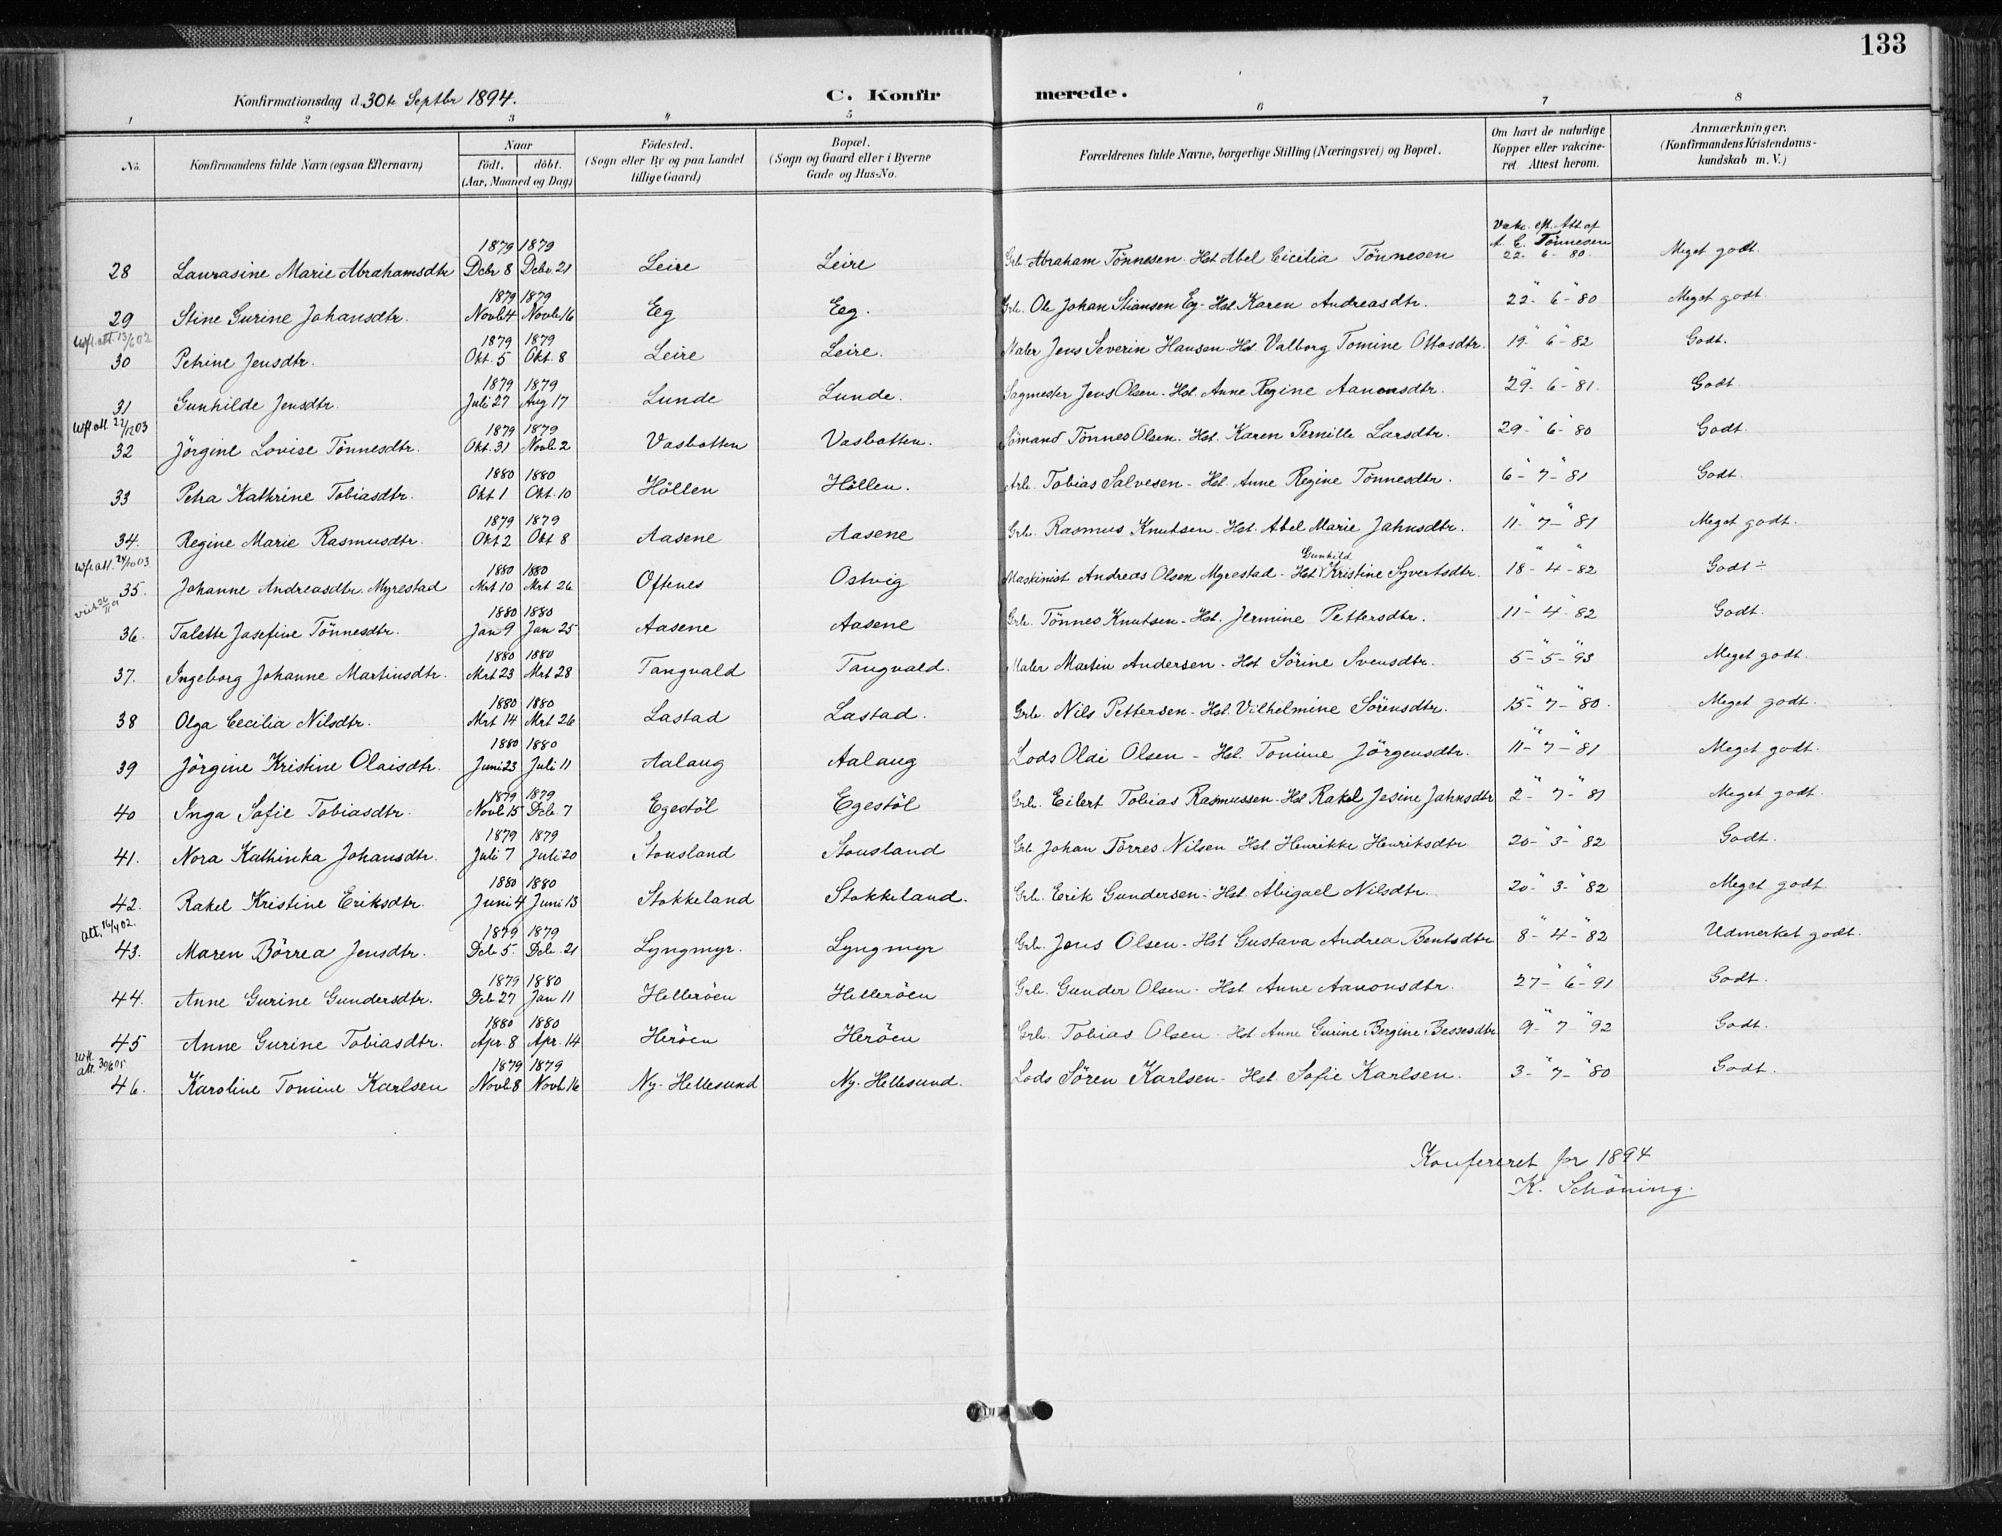 133
Konfirmationsdag d. 30te Septbr 1894. C. Konfirmerede.
1 2 3 4 5 6 7 8
No. Konfirmandens fulde Navn (ogsaa Efternavn) Naar födt. döbt. (Aar, Maaned og Dag) Födested. (Sogn eller By og paa Landet tillige Gaard) Bopæl. (Sogn og Gaard eller i Byerne Gade og Hus-No. Forældrenes fulde Navne, borgerlige Stilling (Næringsvei) og Bopæl. Om havt de naturlige Kopper eller vakcineret. Attest herom. Anmærkninger. (Konfirmandens Kristendomskundskab m. V.)
Vakc. eft. Att. af
A. C. Tönnesen
28 Laurasine Marie Abrahamsdtr 1879 Dcbr 8 1879 Dcbr 21 Leire Leire Grb. Abraham Tönnesen. Hst. Abel Cicilia Tönnesen 22-6-80 Meget godt.
29 Stine Gurine Johansdtr. 1879 Novb 4 1879 Novb 16 Eg Eg. Grb. Ole Johan Stiansen Eg. Hst. Karen Andreasdtr. 22-6-80 Meget godt.
att. 13/6 02
30 Petrine Jensdtr. 1879 Okt. 5 1879 Okt. 8 Leire Leire. Maler Jens Severin Hansen. Hst. Valborg Tomine Ottosdtr. 19-6-82 Godt.
31 Gunhilde Jensdtr. 1879 Juli 27 1879 Aug 17 Lunde Lunde. Sagmester Jens Olsen. Hst. Anne Regine Aanonsdtr. 29-6-81. Godt
att. 22/12 03
32 Jörgine Lovise Tönnesdtr. 1879 Okt. 31 1879 Novb 2 Vasbotten Vasbotten. Sömand Tönnes Olsen. Hst. Karen Pernille Larsdtr. 29-6-80 Godt.
33 Petra Kathrine Tobiasdtr. 1880 Okt. 1 1880 Okt. 10 Höllen Höllen. Arb. Tobias Salvesen - Hst. Anne Regine Tönnesdtr. 6-7-81 Godt.
34. Regine Marie Rasmusdtr. 1879 Okt 2 1879 Okt 8 Aasene Aasene Grb. Rasmus Knutsen. Hst. Abel Marie Jahnsdtr. 11-7-81 Meget godt.
att. 24/10 03
35. Johanne Andreasdtr. Myrestad 1880 Mrt 10 1880 Mrt 26 Oftenes Ostvig Maskinist Andreas Olsen Myrestad - Hst. Gunhild Kristine Syvertsdtr. 18-4-82 Godt ÷
36. Talette Josefine Tönnesdtr. 1880 Jan 9 1880 Jan 25 Aasene Aasene Grb. Tönnes Knutsen - Hst. Jermine Pettersdtr. 11-4-82 Godt.
37. Ingeborg Johanne Martinsdtr. 1880 Mrt 23 1880 Mrt 28 Tangvald Tangvald. Maler Martin Andersen - Hst Sörine Svensdtr. 5-5-93 Meget godt.
38 Olga Cecilia Nilsdtr. 1880 Mrt 14 1880 Mrt 26 Lastad Lastad. Grb. Nils Pettersen - Hst. Vilhelmine Sörensdtr. 15-7-80. Meget godt.
39 Jörgine Kristine Olaisdtr. 1880 Juni 23 1880 Juli 11 Aalaug Aalaug Lods Oldi Olsen - Hst. Tomine Jörgensdtr. 11-7-81 Meget godt.
40 Inga Sofie Tobiasdtr. 1879 Novb 15 1879 Dcb. 7 Egestöl Egestöl Grb. Eilert Tobias Rasmussen - Hst Rakel Jesine Jahnsdtr 2-7-81 Meget godt.
41. Nora Kathinka Johansdtr. 1879 Juli 7 1879 Juli 20 Stousland Stousland Grb. Johan Törres Nilsen Hst. Henrikke Henriksdtr. 20-3-82 Godt.
42. Rakel Kristine Eriksdtr. 1880 Juni 4 1880 Juni 13 Stokkeland Stokkeland. Grb. Erik Gundersen. Hst. Abigael Nilsdtr. 20-3-82 Meget godt.
att. 16/4 02.
43. Maren Börrea Jensdtr. 1879 Dcb 5. 1879 Dcb. 21 Lyngmyr. Lyngmyr Grb. Jens Olsen - Hst Gustava Andrea Bentsdtr 8-4-82 Udmerket godt.
44. Anne Gurine Gundersdtr. 1879 Dcb 27 1880 Jan 11 Helleröen Helleröen Grb. Gunder Olsen - Hst. Anne Aanonsdtr. 27-6-91 Godt.
45 Anne Gurine Tobiasdtr. 1880 Apr. 8 1880 Apr. 14 Heröen Heröen Grb. Tobias Olsen. Hst. Anne Gurine Bergine Bessesdtr. 9-7-92 Godt.
att. 30/6 05
46. Karoline Tomine Karlsen 1879 Novb 8 1879 Novb. 16 Ny-Hellesund Ny-Hellesund. Lods Sören Karlsen - Hst. Sofie Karlsen. 3-7-80 Godt.
Konfereret for 1894
K. Schöning.